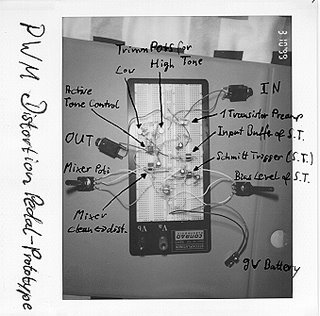 PWM Distortion Pedal-Prototype
3.10.99
Trimm Pots for
Low
High Tone
IN
Active
Tone Control
1 Transistor Preamp
OUT
Input Buffer of S.T.
Mixer Poti
Schmitt Trigger (S.T.)
Bias Level of S.T.
Mixer
clean & dist.
Va
Vb
CONRAD
9V Battery